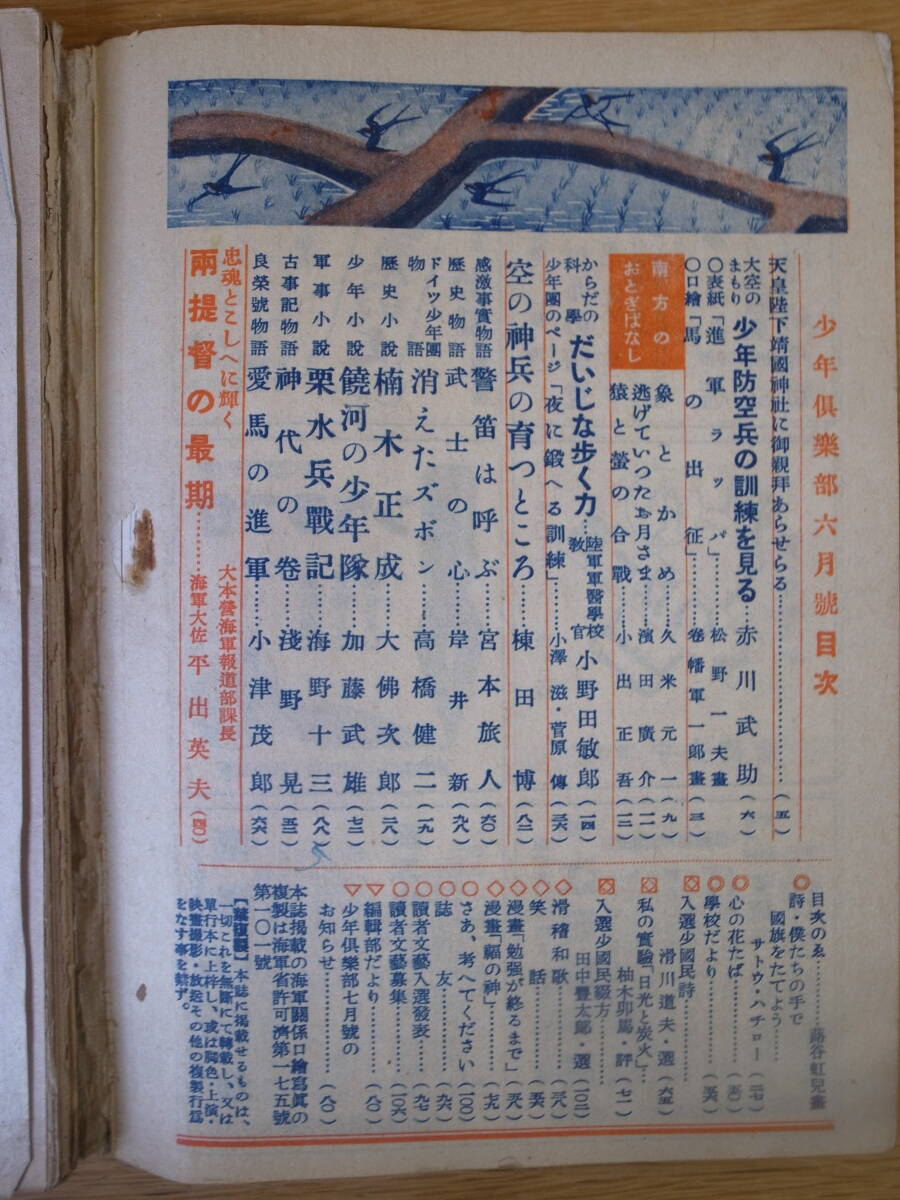 少年倶樂部六月號目次
天皇陛下靖國神社に御親拜あらせらる……………(五)
大空のまもり 少年防空兵の訓練を見る…赤川武助(六)
〇表紙「進軍ラッパ」……松野一夫畫
〇口繪「馬の出征」……卷幡軍一郎畫(三)
南方のおとぎばなし
象とかめ……久米元一(九)
逃げていつたお月さま……濱田廣介(一一)
猿と螢の合戰……小出正吾(一二)
からだの科學 だいじな歩く力…陸軍軍醫學校教官 小野田敏郎(一四)
少年團のページ「夜に鍛へる訓練」……小澤滋・菅原傳(三六)
空の神兵の育つところ…棟田博(八二)
感激事實物語 警笛は呼ぶ……宮本旅人(六〇)
歴史物語 武士の心……岸井新(九八)
ドイツ少年團物語 消えたズボン……高橋健二(一九)
歴史小説 楠木正成……大佛次郎(二八)
少年小説 饒河の少年隊……加藤武雄(七二)
軍事小説 栗水兵戰記……海野十三(八八)
古事記物語 神代の卷……淺野晃(五二)
良榮號物語 愛馬の進軍……小津茂郎(六六)
忠魂とこしへに輝く
兩提督の最期………大本營海軍報道部課長 海軍大佐 平出英夫(四〇)
目次のゑ……蕗谷虹兒畫
◎詩・僕たちの手で國旗をたてよう……サトウ・ハチロー(二七)
〇心の花たば……(五〇)
◎學校だより……(五六)
入選少國民詩……滑川道夫・選(六五)
私の實驗「日光と炭火」…柚木卯馬・評(七一)
入選少國民綴方……田中豐太郎・選(一〇二)
◇滑稽和歌……(三八)
◇笑話……(五六)
◇漫畫「勉強が終るまで」(五八)
◇漫畫「福の神」……(七九)
〇さあ、考へてください(一〇〇)
〇誌友……(九六)
〇讀者文藝入選發表……(九七)
〇讀者文藝募集……(一〇六)
▽編輯部だより……(八〇)
▽少年倶樂部七月號のお知らせ……(八〇)
本誌掲載の海軍關係口繪寫眞の
複製は海軍省許可濟第一七五號
第一〇一號
【禁複製】本誌に掲載せるものは、
一切これを無斷にて轉載し、又は
單行本に上梓し、或は脚色・上演・
映畫撮影・放送その他の複製行爲
をなす事を禁ず。